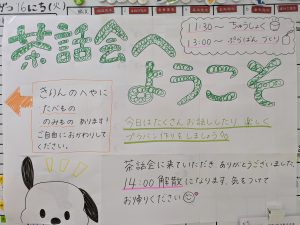 16にち(火)
11:30〜 ちゅうしょく
13:00〜 ぷらばん づくり
茶話会へ
ようこそ
きりんのへやに
たべもの
のみもの あります!
ご自由におかわりして
ください。
今日はたくさんお話ししたり、楽しく
プラバン作りをしましょう
茶話会に来ていただき ありがとうございました。
14:00 解散になります。気をつけて
お帰りください